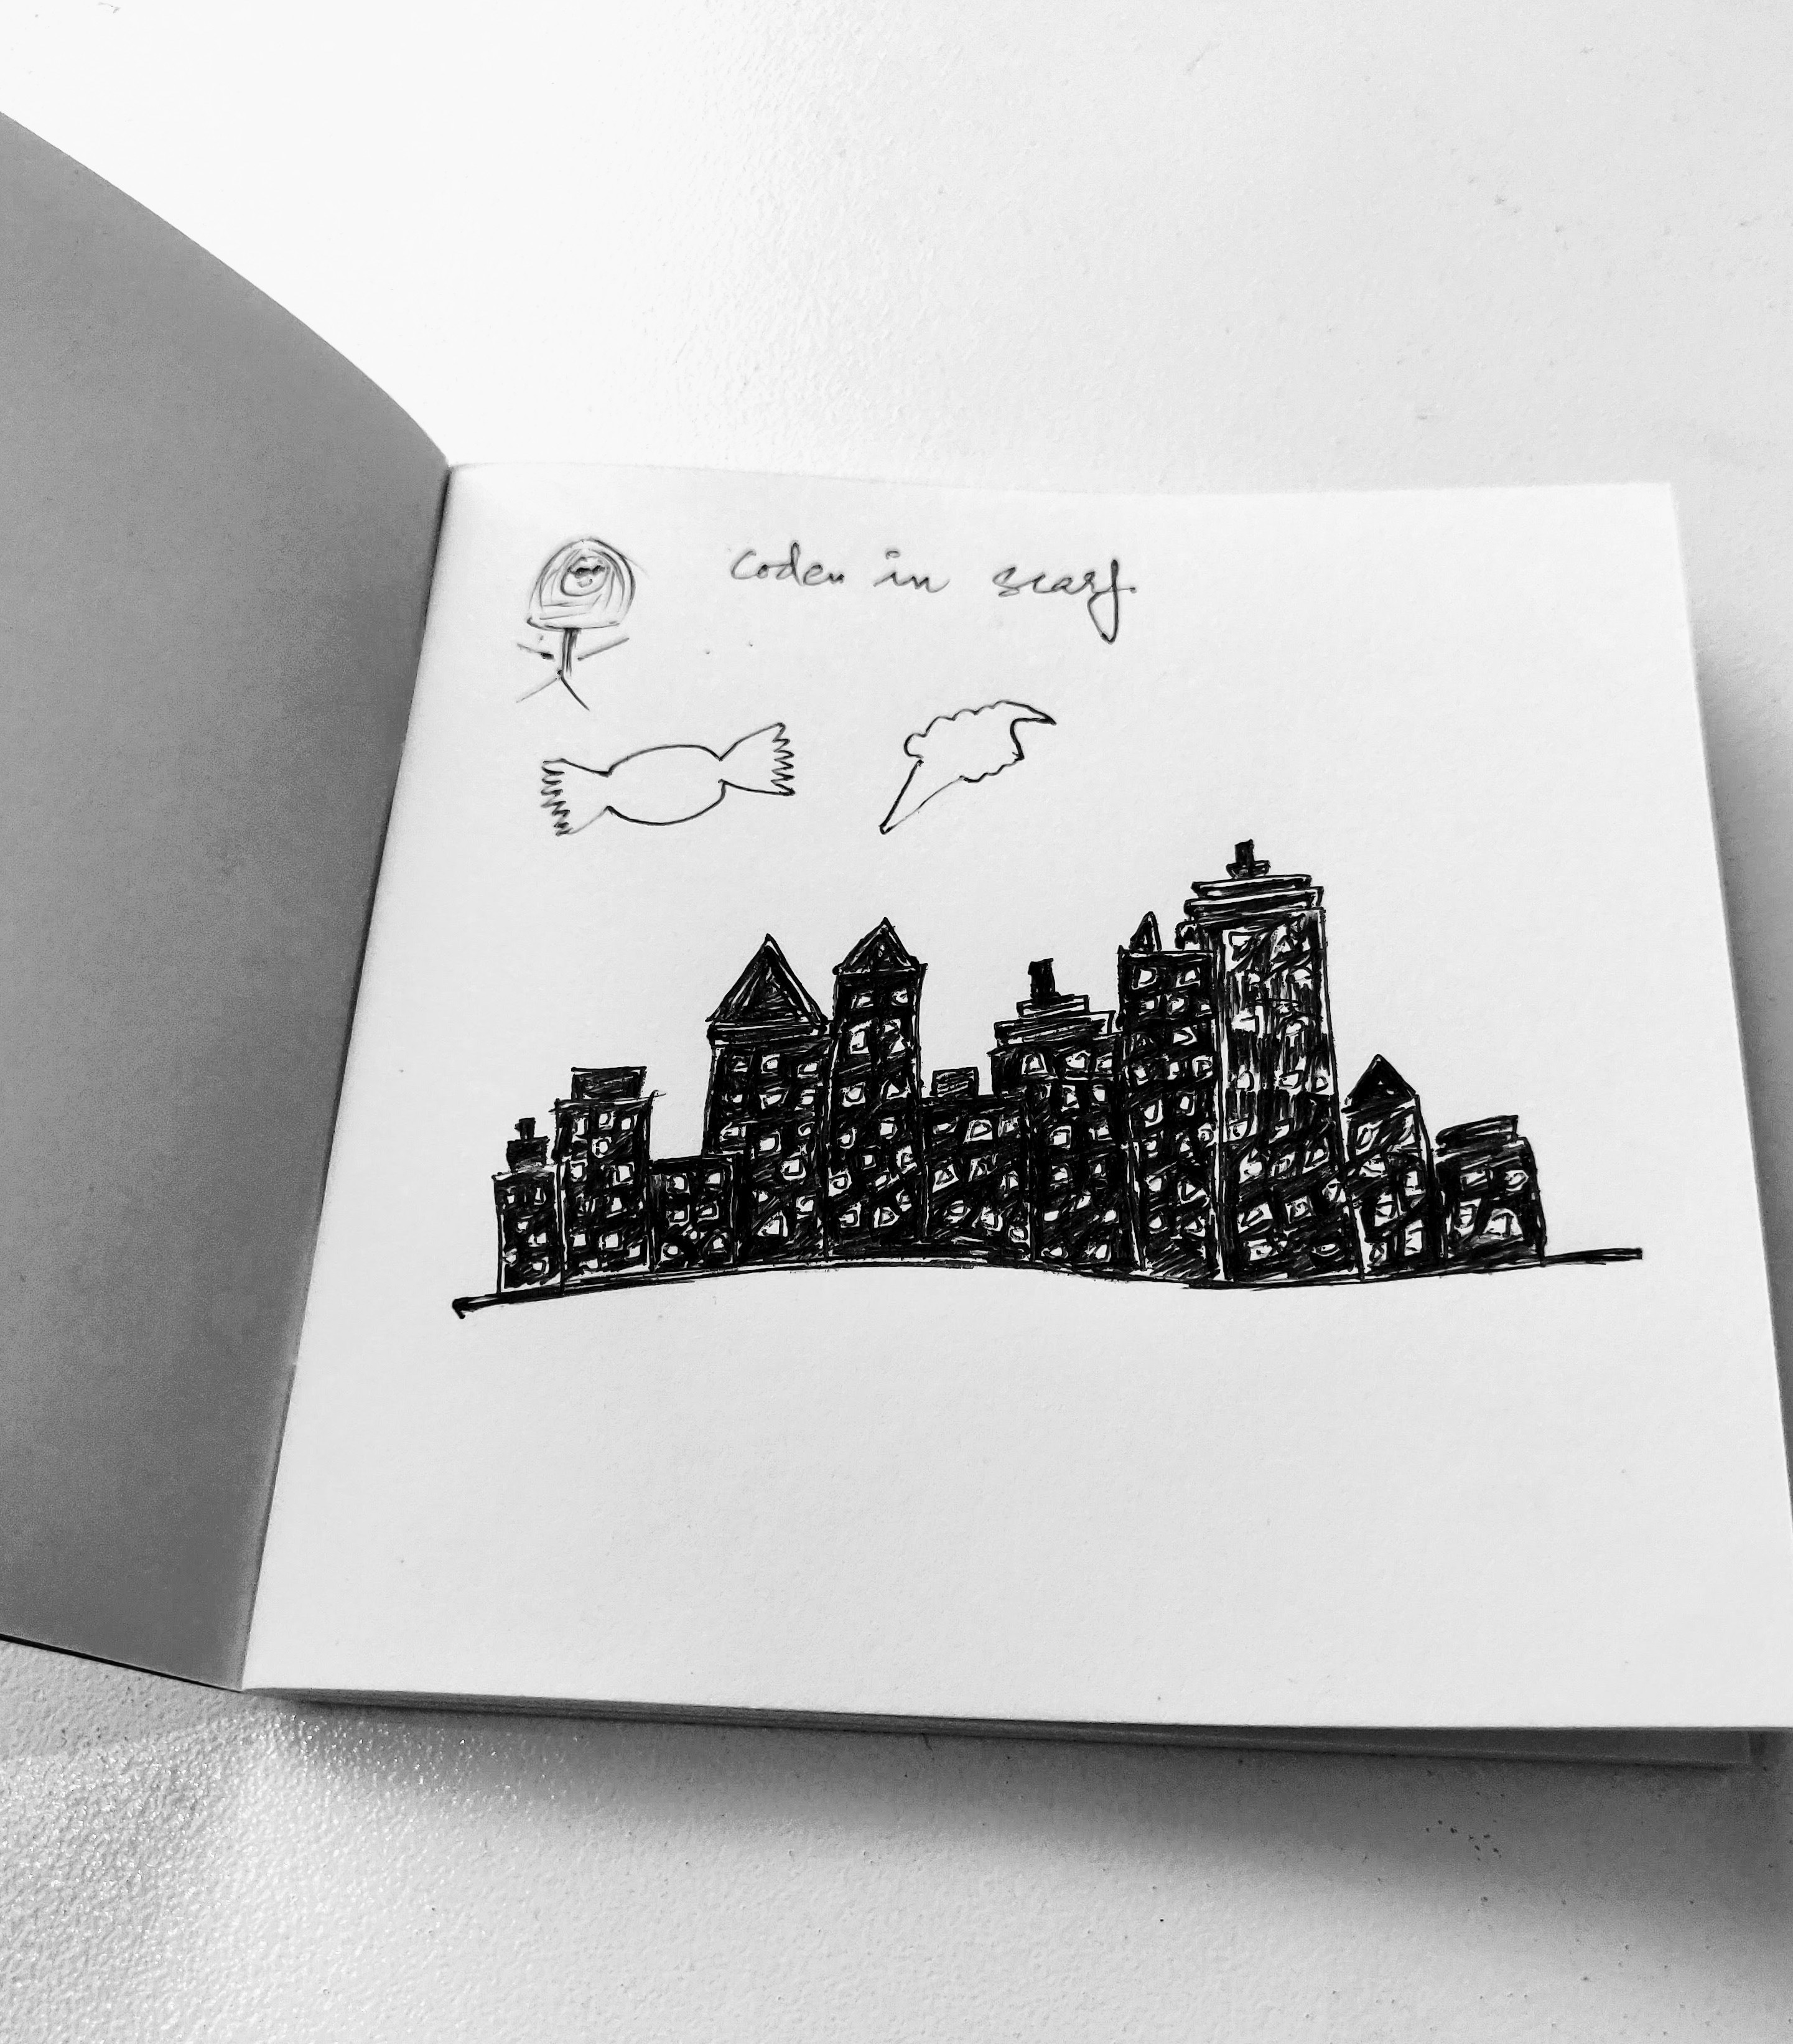 Coder in scarf.